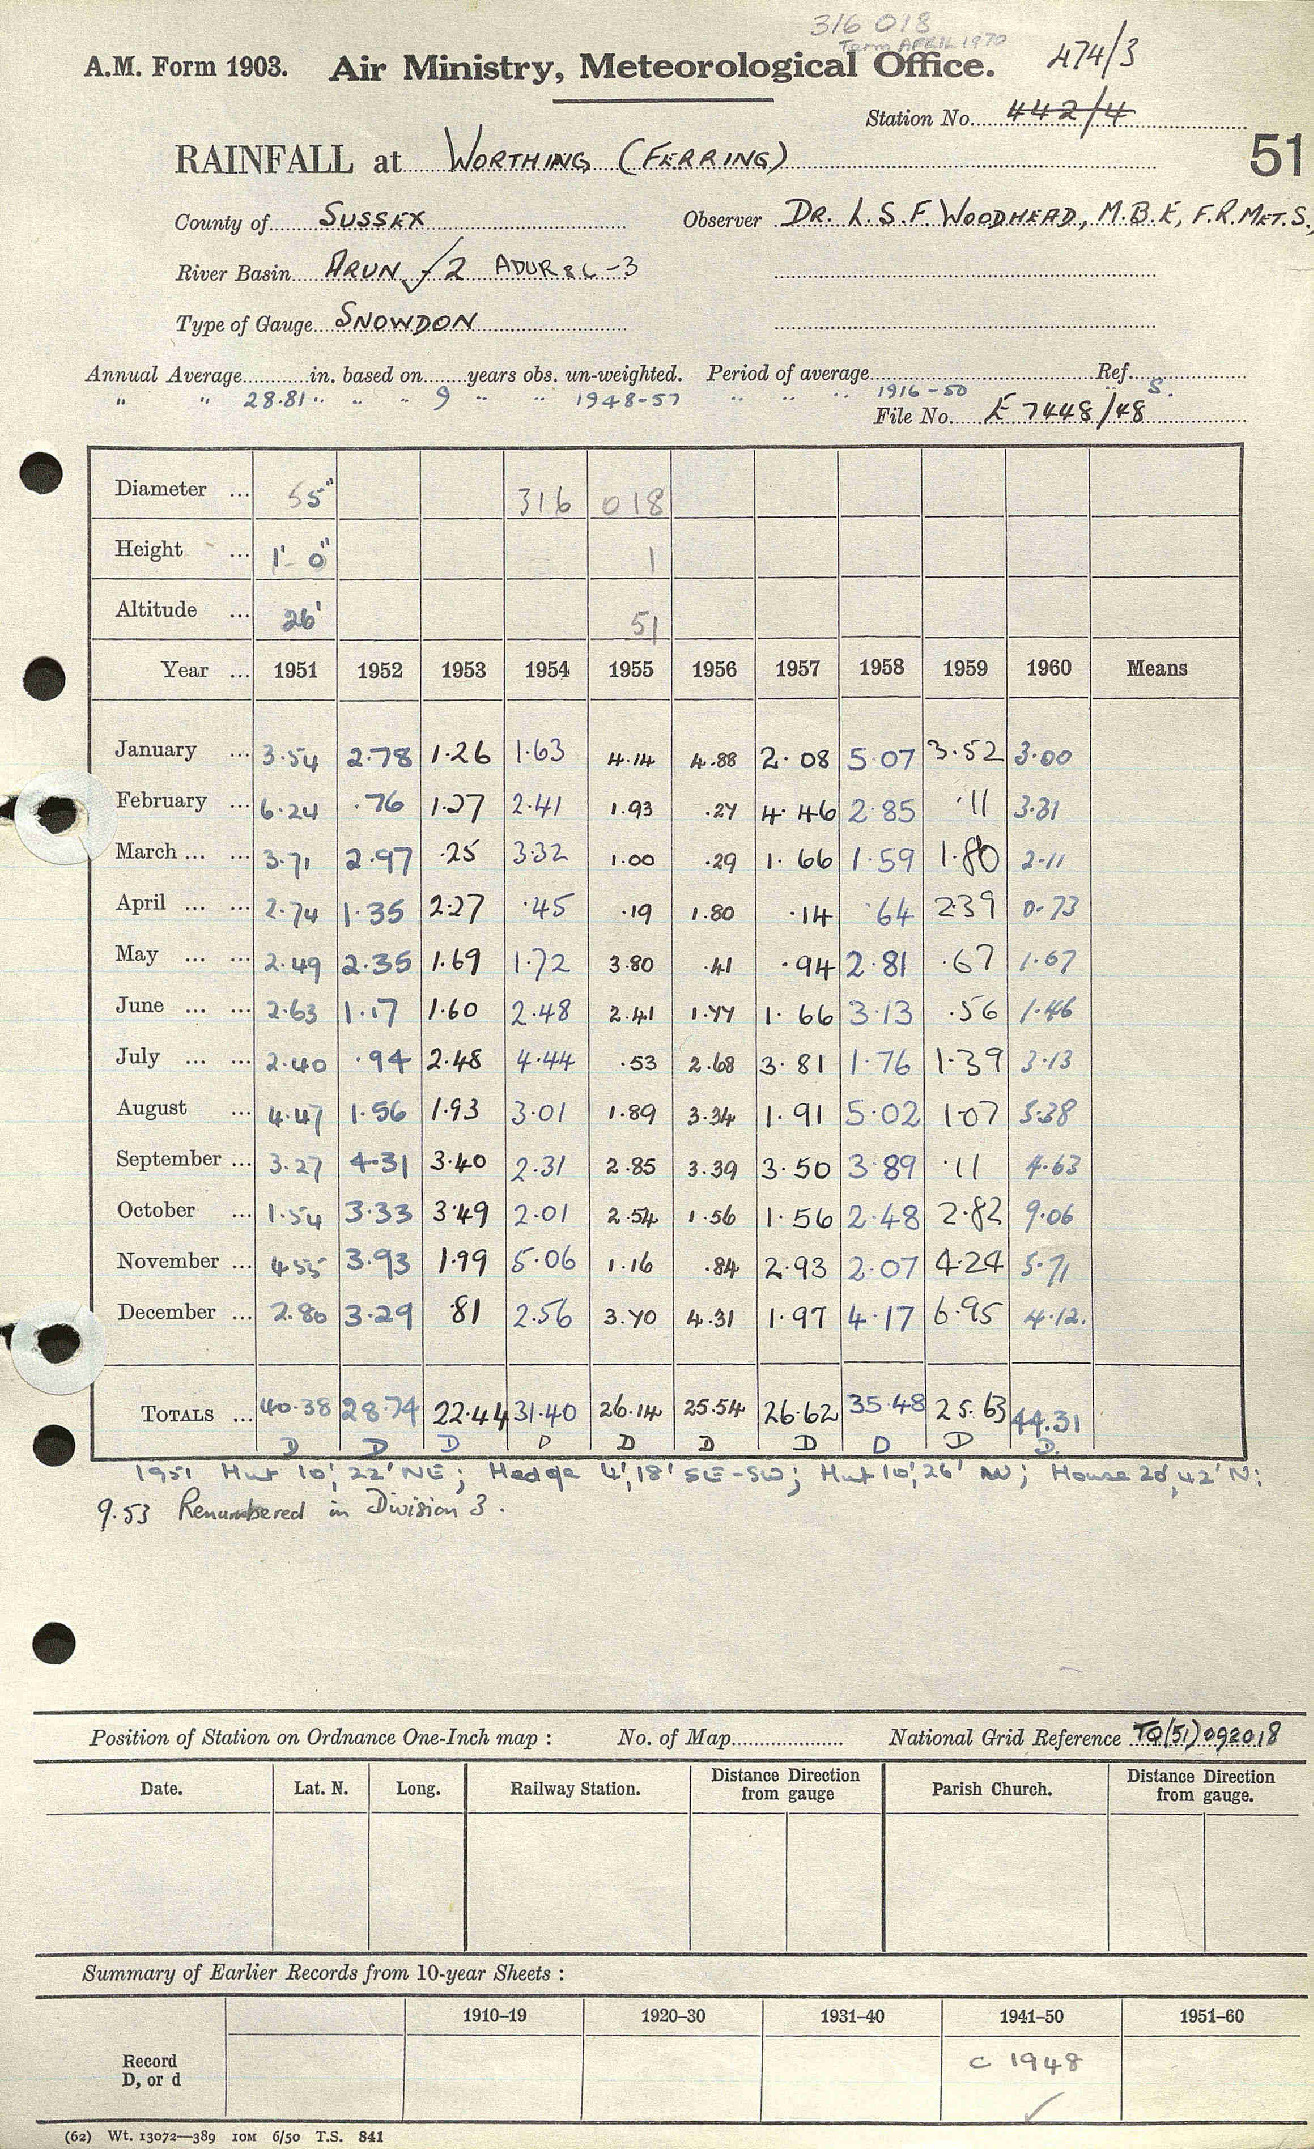 316 018
Term APRIL 1970
A.M. Form 1903. Air Ministry, Meteorological Office. 474/3
Station No. 442/4
RAINFALL at WORTHING (FERRING) 51
County of SUSSEX Observer DR. L.S.F. WOODHEAD, M.B.E, F.R.MET.S.,
River Basin ARUN -2 ADUR &C -3
Type of Gauge SNOWDON
Annual Average in. based on years obs. un-weighted. Period of average Ref.
" " 28.81 " " " 9 " " 1948-57 " " " 1916-50 S.
File No. E 7448/48
Diameter ... 5" 316 018
Height ... 1'-0" 1
Altitude ... 26' 51
Year ... 1951 1952 1953 1954 1955 1956 1957 1958 1959 1960 Means
January ... 3.54 2.78 1.26 1.63 4.14 4.88 2.08 5.07 3.52 3.00
February ... 6.24 .76 1.27 2.41 1.93 .27 4.46 2.85 .11 3.31
March ... ... 3.71 2.97 .25 3.32 1.00 .29 1.66 1.59 1.80 2.11
April ... ... 2.74 1.35 2.27 .45 .19 1.80 .14 .64 2.39 0.73
May ... ... 2.49 2.35 1.69 1.72 3.80 .41 .94 2.81 .67 1.67
June ... ... 2.63 1.17 1.60 2.48 2.41 1.77 1.66 3.13 .56 1.46
July ... ... 2.40 .94 2.48 4.44 .53 2.68 3.81 1.76 1.39 3.13
August ... 4.47 1.56 1.93 3.01 1.89 3.34 1.91 5.02 1.07 5.38
September ... 3.27 4.31 3.40 2.31 2.85 3.39 3.50 3.89 .11 4.63
October ... 1.54 3.33 3.49 2.01 2.54 1.56 1.56 2.48 2.82 9.06
November ... 4.55 3.93 1.99 5.06 1.16 .84 2.93 2.07 4.24 5.71
December ... 2.80 3.29 .81 2.56 3.70 4.31 1.97 4.17 6.95 4.12.
TOTALS ... 40.38 28.74 22.44 31.40 26.14 25.54 26.62 35.48 25.63 44.31
D D D D D D D D D D
1951 Hut 10', 22' NE; Hedge 4', 18' SE-SW; Hut 10', 26' NW; House 20', 42' N;
9.53 Renumbered in Division 3.
Position of Station on Ordnance One-Inch map : No. of Map National Grid Reference TQ(51)092018
Date. Lat. N. Long. Railway Station. Distance Direction from gauge Parish Church. Distance Direction from gauge.
Summary of Earlier Records from 10-year Sheets :
1910-19 1920-30 1931-40 1941-50 1951-60
Record D, or d C 1948
(62) Wt. 13072—389 10M 6/50 T.S. 841